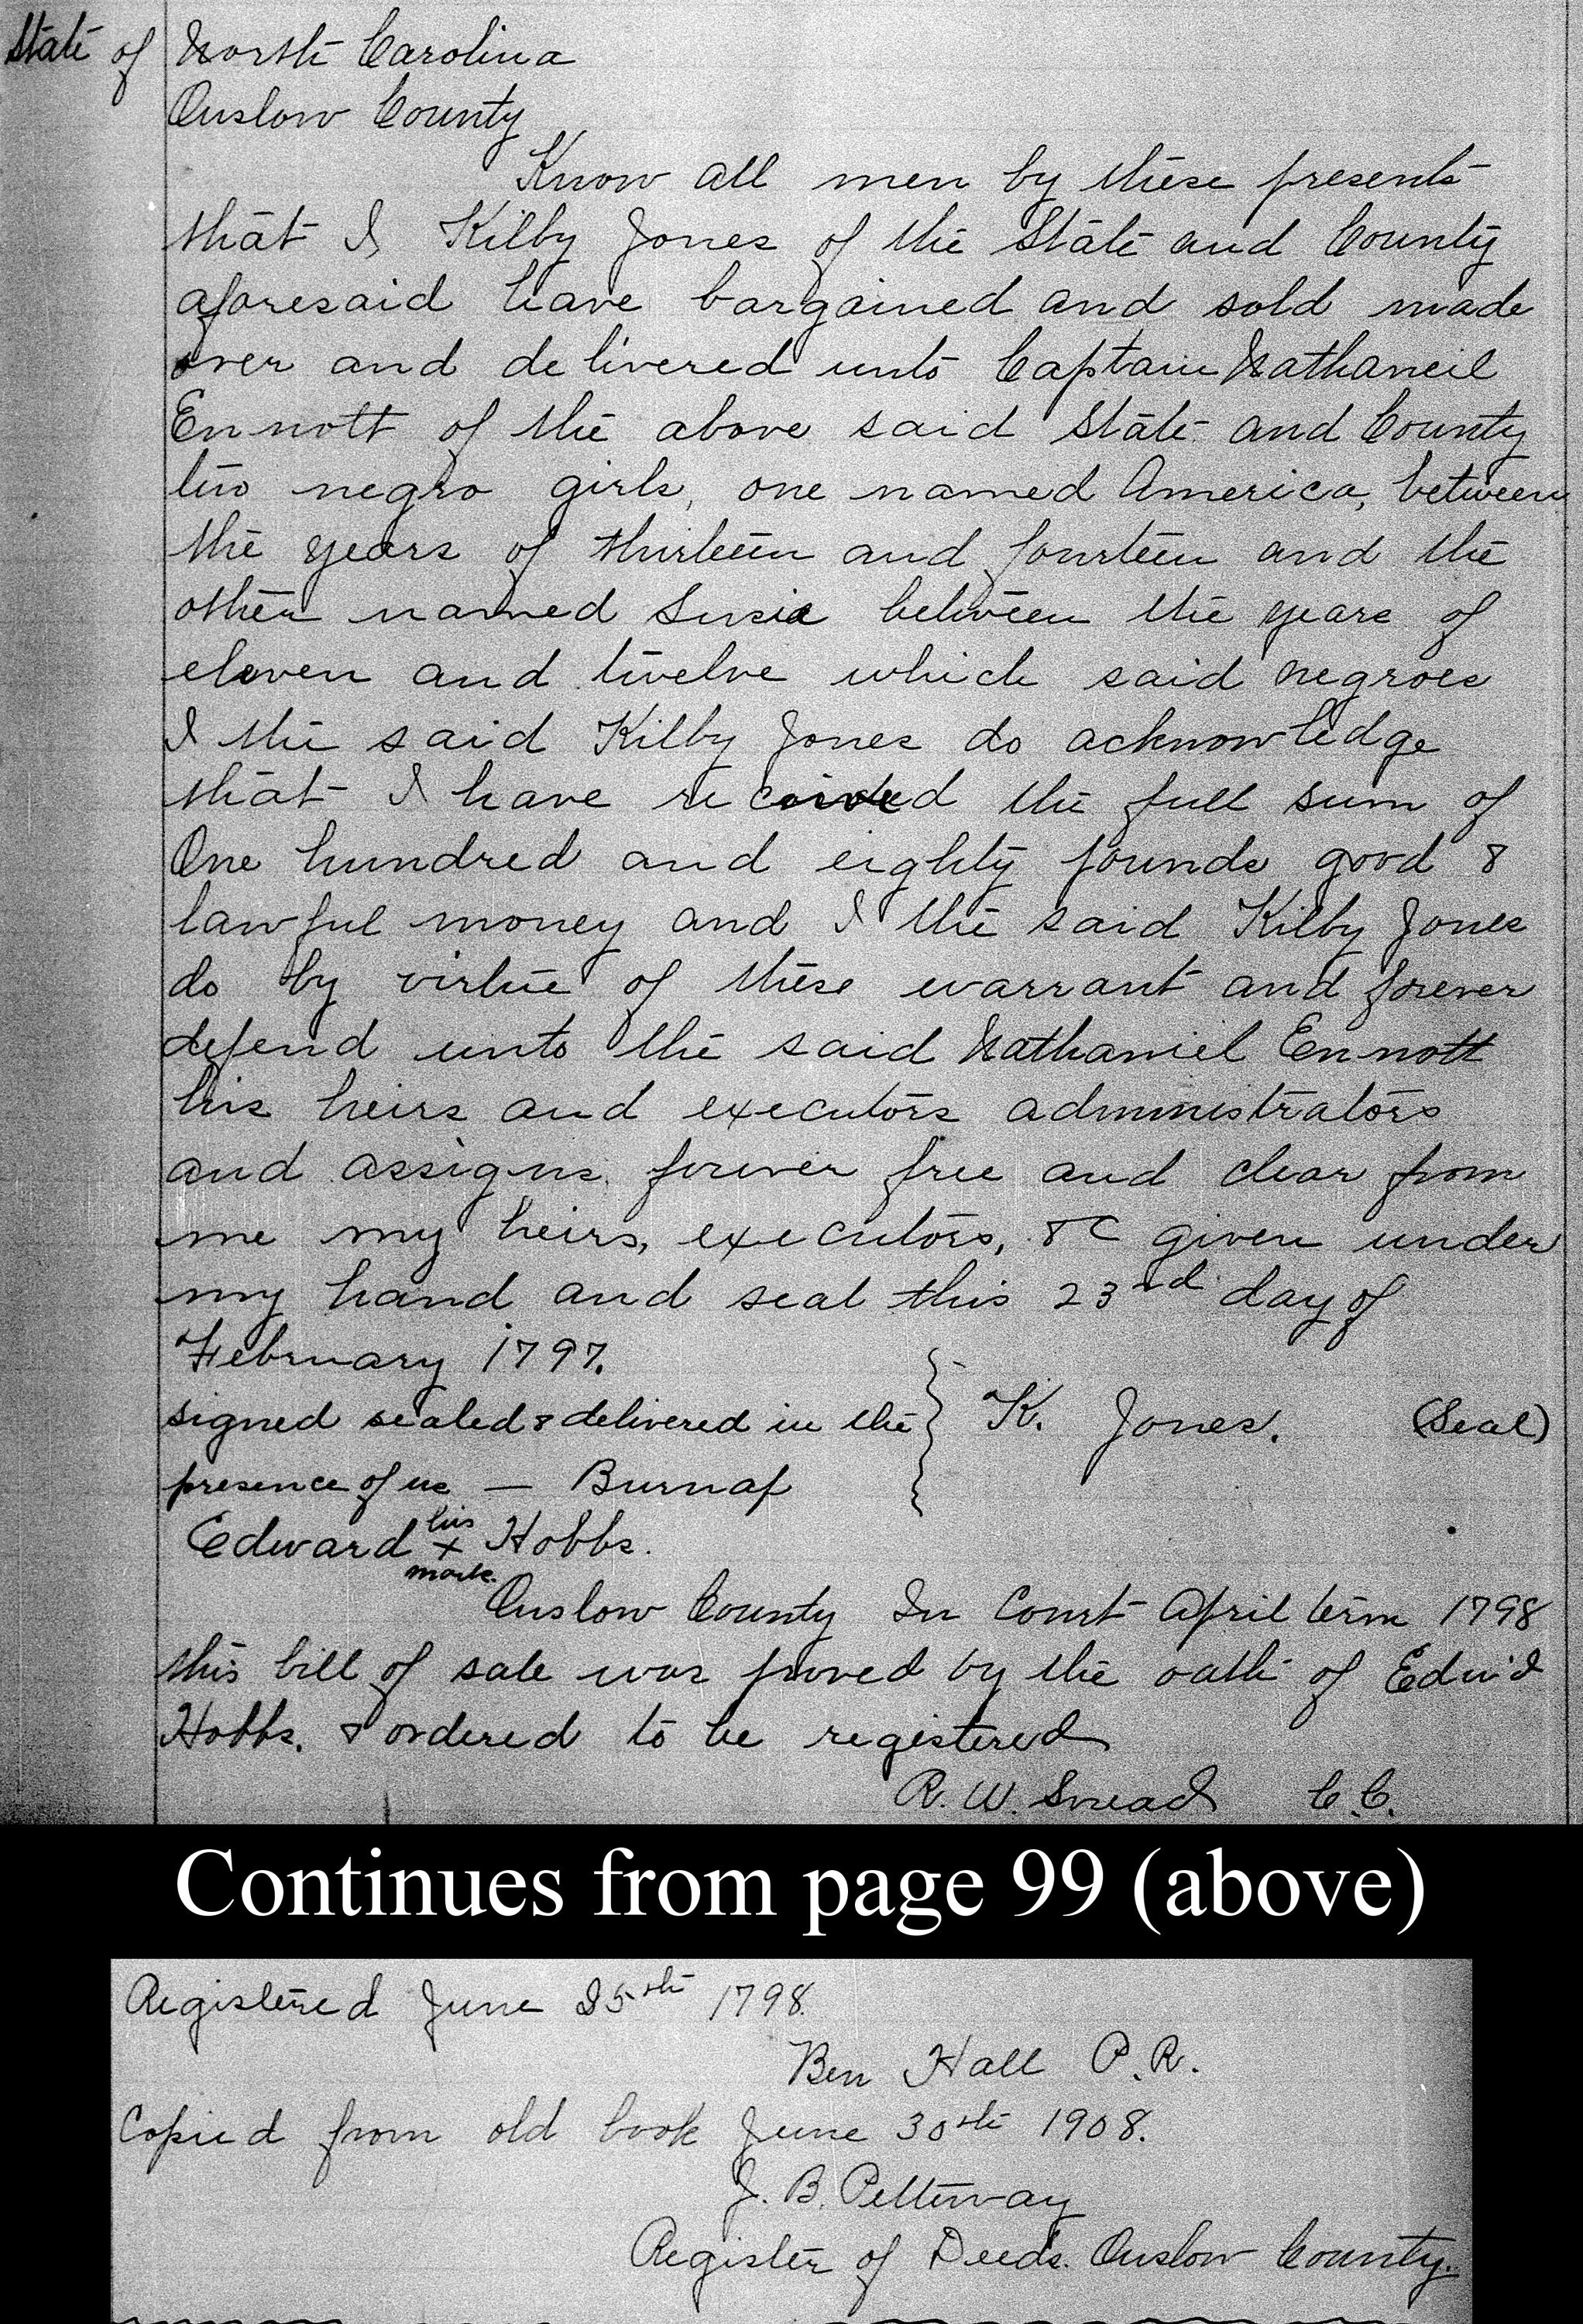 State of North Carolina
Onslow County
Know all men by these presents
that I Kilby Jones of the State and County
aforesaid have bargained and sold made
over and delivered unto Captain Nathaneil
Ennott of the above said State and County
two negro girls, one named America, between
the years of thirteen and fourteen and the
other named Susie between the years of
eleven and twelve which said negroes
I the said Kilby Jones do acknowledge
that I have received the full sum of
One hundred and eighty pounds good &
lawful money and I the said Kilby Jones
do by virtue of these warrant and forever
defend unto the said Nathaniel Ennott
his heirs and executors administrators
and assigns forever free and clear from
me my heirs, executors, &C given under
my hand and seal this 23rd day of
February 1797.
signed sealed & delivered in the } K. Jones. (Seal)
presence of us — Burnap
Edward his x mark. Hobbs.
Onslow County In Court April term 1798
this bill of sale was proved by the oath of Edw'd
Hobbs. & ordered to be registered
R. W. Snead C.C.
Continues from page 99 (above)
Registered June 25th 1798.
Ben Hall P.R.
Copied from old book June 30th 1908.
J. B. Petteway
Register of Deeds. Onslow County.